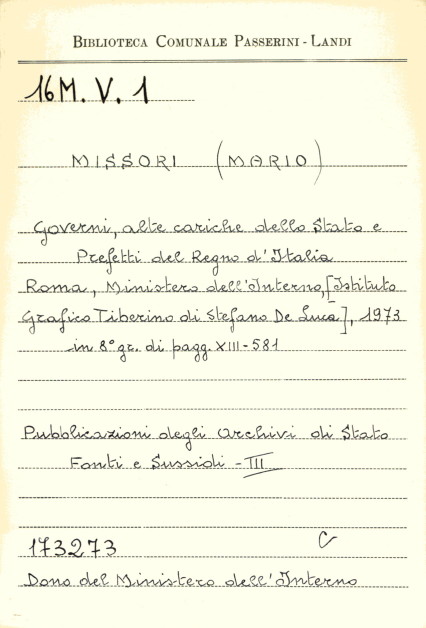 BIBLIOTECA COMUNALE PASSERINI - LANDI
16 M. V. 1
MISSORI (MARIO)
Governi, alte cariche dello Stato e
Prefetti del Regno d'Italia
Roma, Ministero dell'Interno, [Istituto
Grafico Tiberino di Stefano De Luca], 1973
in 8° gr. di pagg. XIII-581
Pubblicazioni degli Archivi di Stato
Fonti e Sussidi - III
173273 C
Dono del Ministero dell'Interno